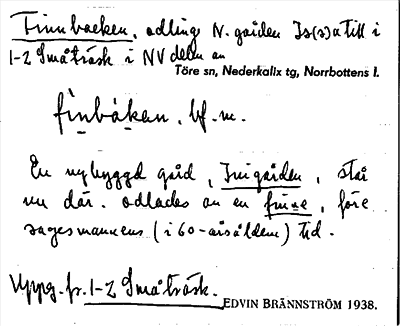 Finnbacken, odling N. gården Is(s)atill i
1-2 Småträsk i NV delen an
Töre sn, Nederkalix tg, Norrbottens l.
fìnbàkan, bf. m.
En nybyggd gård, Inigården, står
nu där. odlades av en finne, före
sagesmannens (i 60-årsåldern) tid.
Uppg. fr. 1-2 Småträsk.
EDVIN BRÄNNSTRÖM 1938.